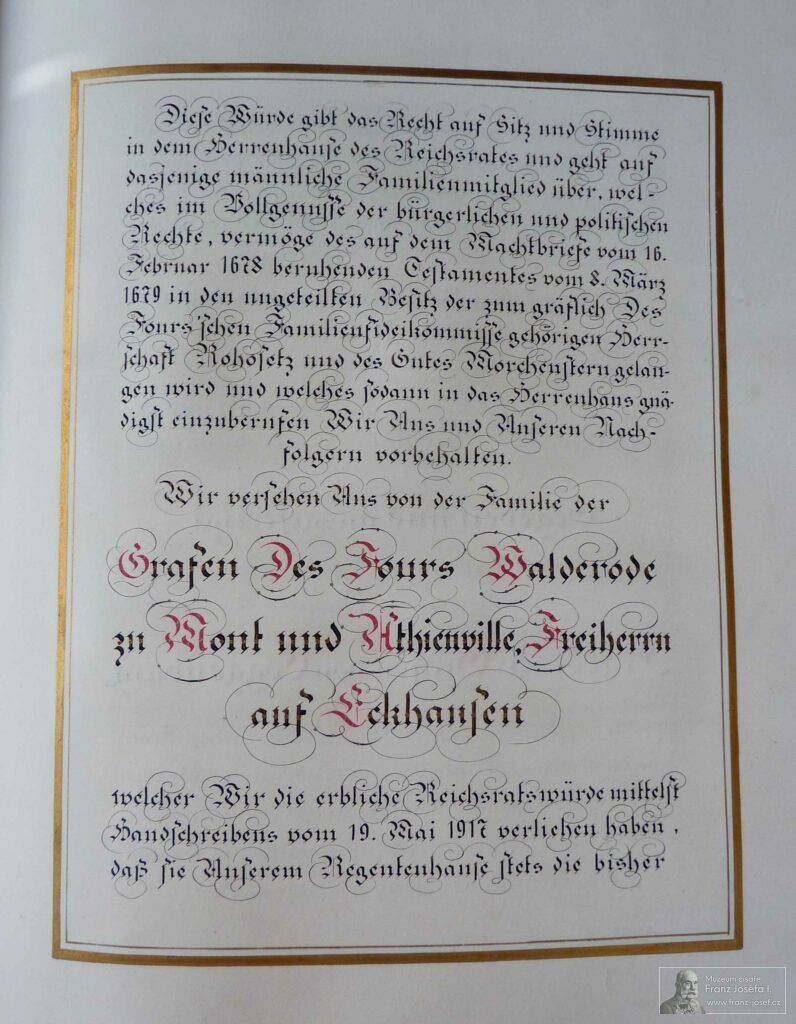 Diese Würde gibt das Recht auf Sitz und Stimme
in dem Herrenhause des Reichsrates und geht auf
dasjenige männliche Familienmitglied über, wel-
ches im Vollgenusse der bürgerlichen und politischen
Rechte, vermöge des auf dem Machtbriefe vom 16.
Februar 1678 beruhenden Testamentes vom 8. März
1679 in den ungeteilten Besitz der zum gräflich Des
Fours'schen Familienfideikommisse gehörigen Herr-
schaft Rohosetz und des Gutes Morchenstern gelan-
gen wird und welches sodann in das Herrenhaus gnä-
digst einzuberufen Wir Uns und Unseren Nach-
folgern vorbehalten.
Wir versehen Uns von der Familie der
Grafen Des Fours Walderode
zu Mont und Athienville, Freiherrn
auf Eckhausen
welcher Wir die erbliche Reichsratswürde mittelst
Handschreibens vom 19. Mai 1917 verliehen haben,
daß sie Unserem Regentenhause stets die bisher
Muzeum císaře
Franz Josefa I.
www.franz-josef.cz